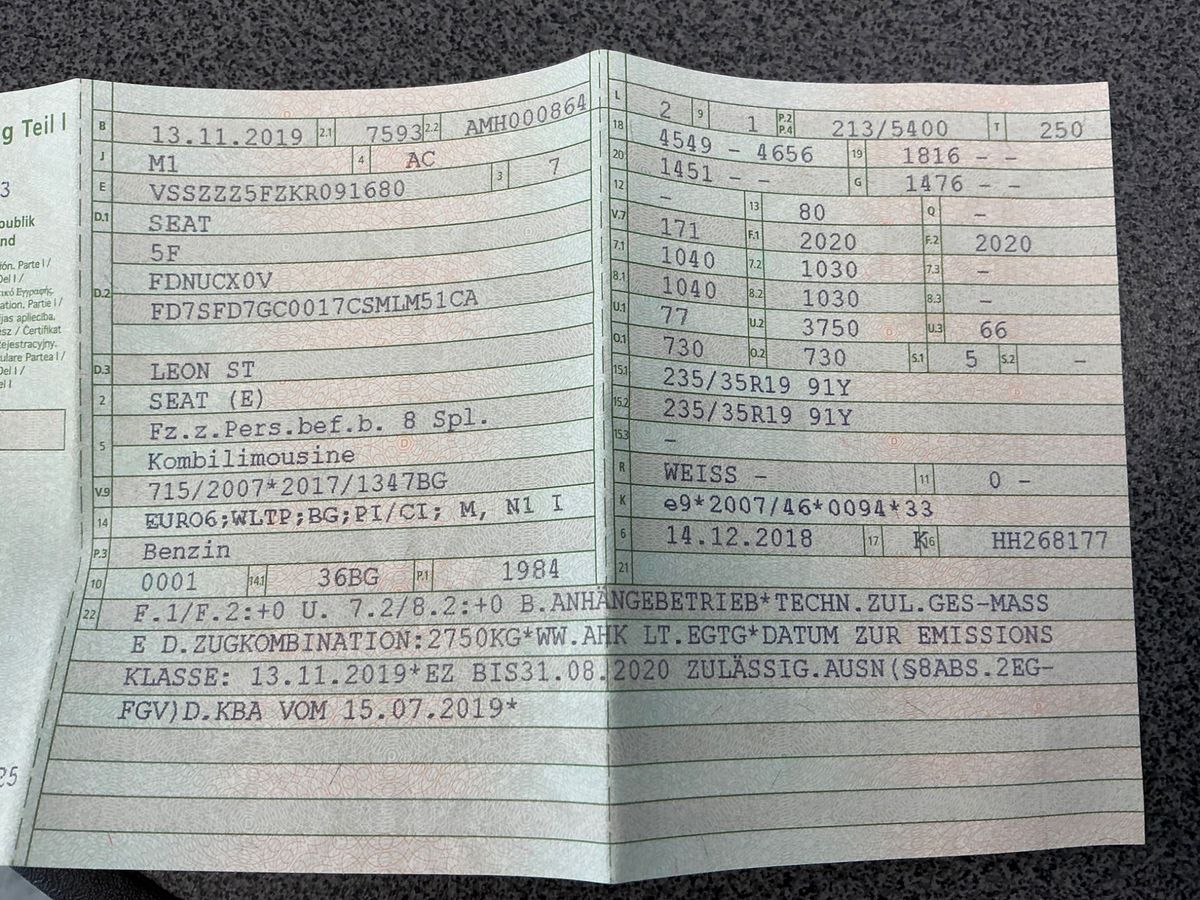 g Teil I
3
publik
nd
ión. Parte I /
Del I /
ation. Partie I /
jas apliecība.
ész / Certifikat
Rejestracyjny.
ulare Partea I /
Del I /
el I
25
B 13.11.2019 2.1 7593 2.2 AMH000864
J M1 4 AC
E VSSZZZ5FZKR091680 3 7
D.1 SEAT
5F
D.2 FDNUCX0V
FD7SFD7GC0017CSMLM51CA
D.3 LEON ST
2 SEAT (E)
5 Fz.z.Pers.bef.b. 8 Spl.
Kombilimousine
V.9 715/2007*2017/1347BG
14 EURO6;WLTP;BG;PI/CI; M, N1 I
P.3 Benzin
10 0001 14.1 36BG P.1 1984
L 2 9 1 P.2 P.4 213/5400 T 250
18 4549 - 4656 19 1816 - -
20 1451 - - G 1476 - -
12 - 13 80 Q -
V.7 171 F.1 2020 F.2 2020
7.1 1040 7.2 1030 7.3 -
8.1 1040 8.2 1030 8.3 -
U.1 77 U.2 3750 U.3 66
O.1 730 O.2 730 S.1 5 S.2 -
15.1 235/35R19 91Y
15.2 235/35R19 91Y
15.3 -
R WEISS - 11 0 -
K e9*2007/46*0094*33
6 14.12.2018 17 K 16 HH268177
21
22 F.1/F.2:+0 U. 7.2/8.2:+0 B.ANHÄNGEBETRIEB*TECHN.ZUL.GES-MASS
E D.ZUGKOMBINATION:2750KG*WW.AHK LT.EGTG*DATUM ZUR EMISSIONS
KLASSE: 13.11.2019*EZ BIS31.08.2020 ZULÄSSIG.AUSN(§8ABS.2EG-
FGV)D.KBA VOM 15.07.2019*